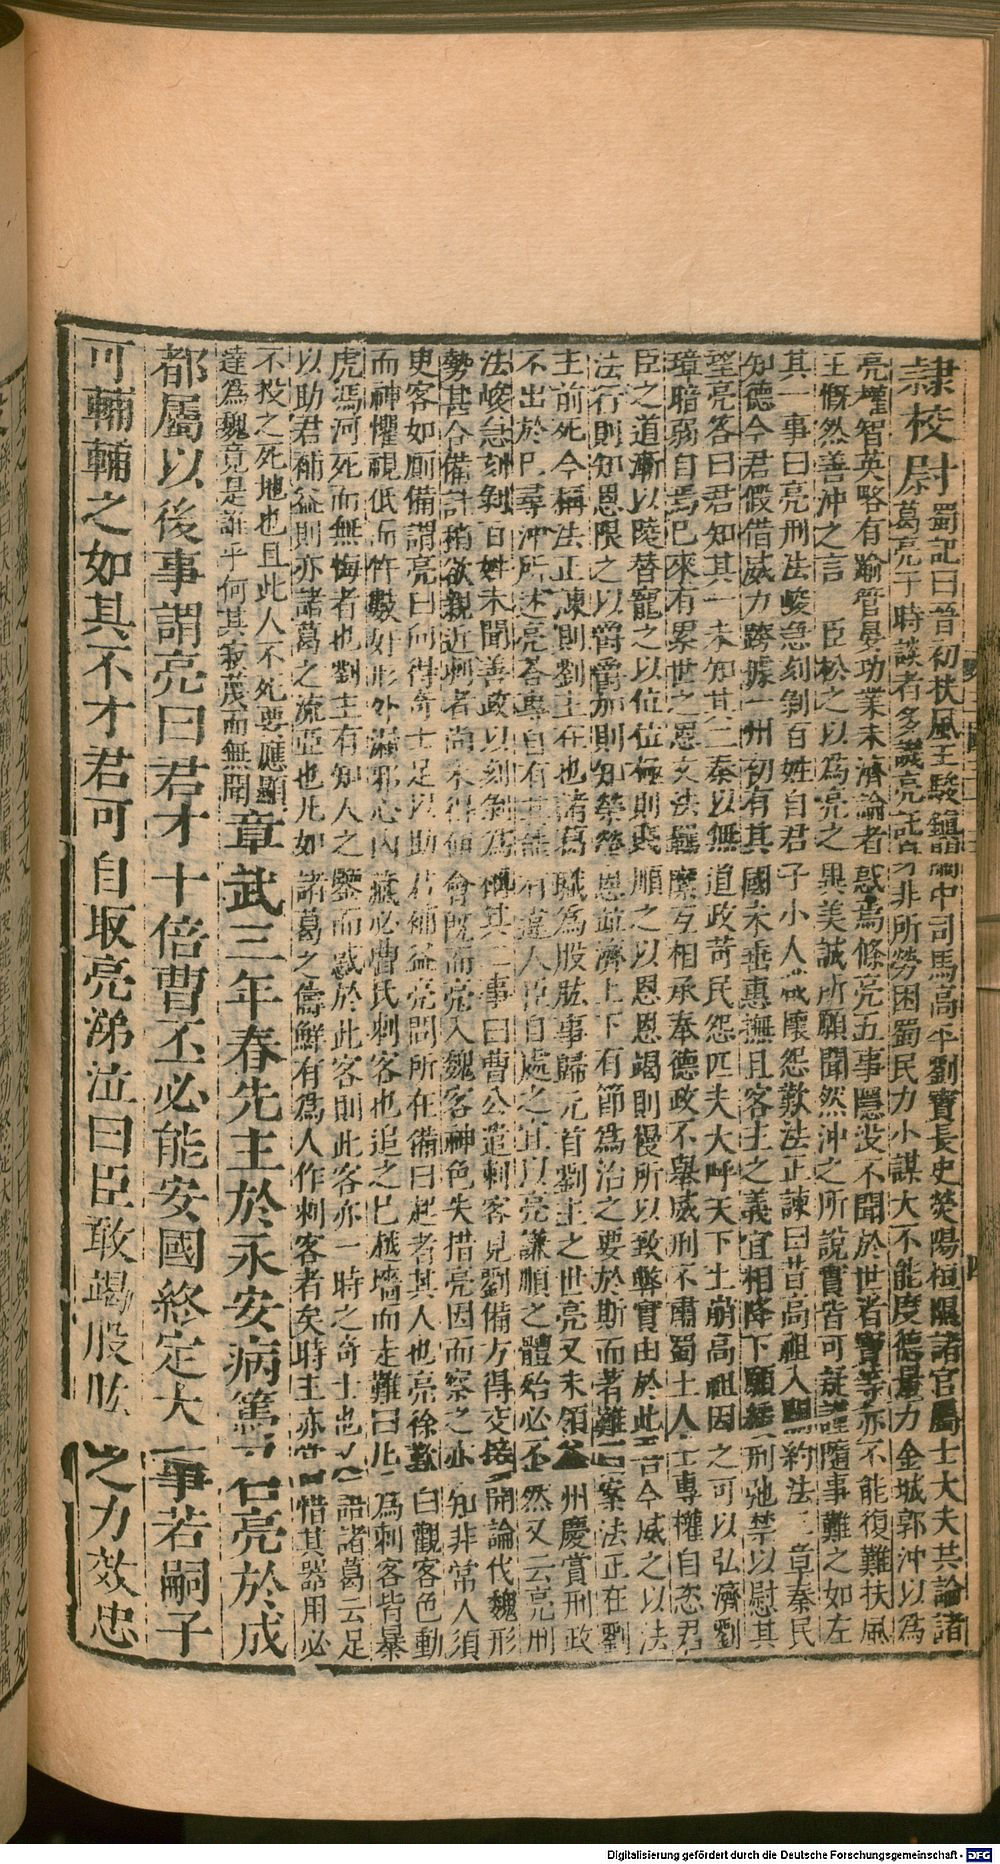 隸校尉
蜀記曰晉初扶風王駿鎮關中司馬高平劉寶長史滎陽桓隰諸官屬士大夫共論諸
葛亮于時談者多譏亮託身非所勞困蜀民力小謀大不能度德量力金城郭沖以為
亮權智英略有踰管晏功業未濟論者惑焉條亮五事隱没不聞於世者寶等亦不能復難扶風
王慨然善沖之言　臣松之以為亮之異美誠所願聞然沖之所說實皆可疑謹隨事難之如左
其一事曰亮刑法峻急刻剝百姓自君子小人咸懷怨歎法正諫曰昔高祖入關約法三章秦民
知德今君假借威力跨據一州初有其國未垂惠撫且客主之義宜相降下願緩刑弛禁以慰其
望亮答曰君知其一未知其二秦以無道政苛民怨匹夫大呼天下土崩高祖因之可以弘濟劉
璋暗弱自焉已來有累世之恩文法羈縻互相承奉德政不舉威刑不肅蜀土人士專權自恣君
臣之道漸以陵替寵之以位位極則賤順之以恩恩竭則慢所以致弊實由於此吾今威之以法
法行則知恩限之以爵爵加則知榮榮恩並濟上下有節為治之要於斯而著難曰案法正在劉
主前死今稱法正諫則劉主在也諸葛職為股肱事歸元首劉主之世亮又未領益州慶賞刑政
不出於己尋沖所述亮答專自有其能有違人臣自處之宜以亮謙順之體殆必不然又云亮刑
法峻急刻剝百姓未聞善政以刻剝為稱其二事曰曹公遣刺客見劉備方得交接開論伐魏形
勢甚合備計稍欲親近刺者尚未得便會既而亮入魏客神色失措亮因而察之亦知非常人須
臾客如廁備謂亮曰向得奇士足以助君補益亮問所在備曰起者其人也亮徐歎曰觀客色動
而神懼視低而忤數奸形外漏邪心內藏必曹氏刺客也追之已越墻而走難曰凡為刺客皆暴
虎馮河死而無悔者也劉主有知人之鑒而惑於此客則此客亦一時之奇士也又語諸葛云足
以助君補益則亦諸葛之流亞也凡如諸葛之儔鮮有為人作刺客者矣時主亦當惜其器用必
不投之死地也且此人不死要應顯
達為魏竟是誰乎何其寂蔑而無聞
章武三年春先主於永安病篤召亮於成
都屬以後事謂亮曰君才十倍曹丕必能安國終定大事若嗣子
可輔輔之如其不才君可自取亮涕泣曰臣敢竭股肱之力效忠
Digitalisierung gefördert durch die Deutsche Forschungsgemeinschaft - DFG